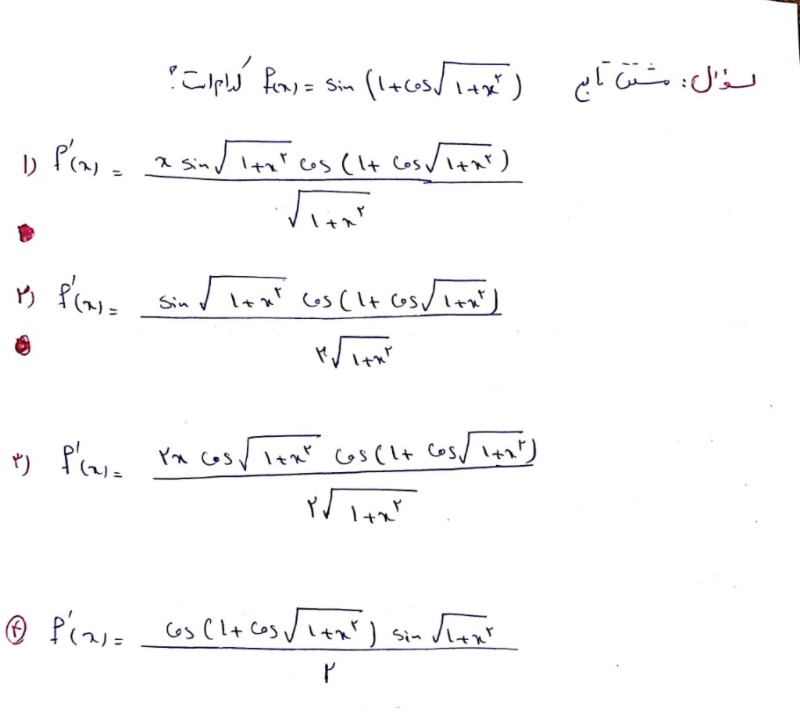 سؤال: مشتق تابع f(x) = sin (1+cos√(1+x²)) کدام است؟
1) f'(x) = x sin√(1+x²) cos(1+ cos√(1+x²)) / √(1+x²)
۲) f'(x) = sin√(1+x²) cos(1+ cos√(1+x²)) / ۲√(1+x²)
۳) f'(x) = ۲x cos√(1+x²) cos(1+ cos√(1+x²)) / ۲√(1+x²)
۴ f'(x) = cos(1+ cos√(1+x²)) sin√(1+x²) / ۲